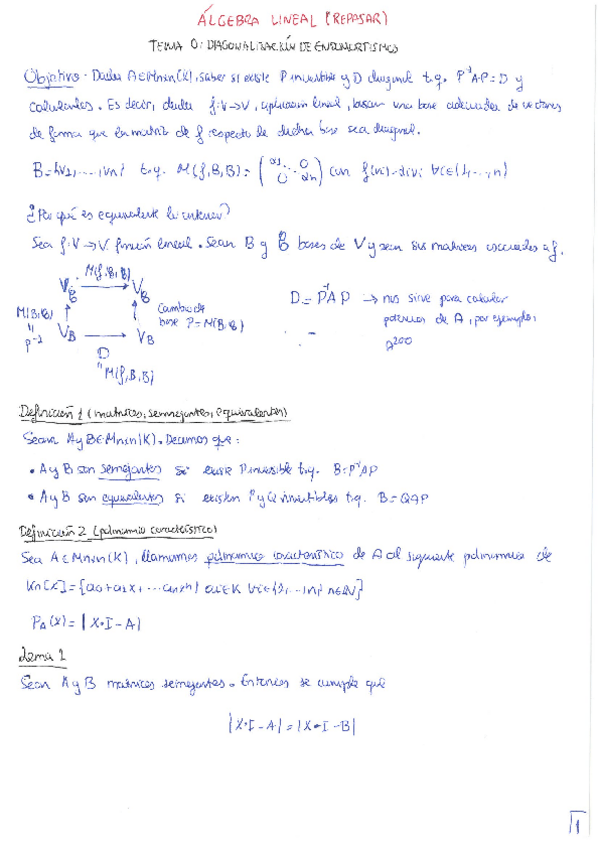 ÁLGEBRA LINEAL (REPASAR)
TEMA 0: DIAGONALIZACIÓN DE ENDOMORFISMOS
Objetivo: Dada A∈Mnxn(K), saber si existe P invertible y D diagonal t.q. P⁻¹AP=D y
calcularlas. Es decir, dada f:V→V, aplicación lineal, buscar una base adecuada de vectores
de forma que la matriz de f respecto de dicha base sea diagonal.
B={v1,...,vn} t.q. M(f,B,B)= (α1 ... 0 0 αn) con f(vi)=αivi ∀i∈{1,...,n}
¿Por qué es equivalente lo anterior?
Sea f:V→V función lineal. Sean B y B̃ bases de V y sean sus matrices asociadas a f.
M(f,B̃,B̃)
VB̃ → VB̃
D=P⁻¹AP → nos sirve para calcular
potencias de A, por ejemplo:
A²⁰⁰
Cambio de
base P=M(B,B̃)
P⁻¹
VB → VB
D
M(f,B,B)
Definición 1 (matrices, semejantes, equivalentes)
Sean A y B∈Mnxn(K). Decimos que:
• A y B son semejantes si existe P invertible t.q. B=P⁻¹AP
• A y B son equivalentes si existen P y Q invertibles t.q. B=QAP
Definición 2 (polinomio característico)
Sea A∈Mnxn(K), llamamos polinomio característico de A al siguiente polinomio de
Kn[x]={a0+a1x+...anxⁿ / ai∈K ∀i∈{1,...,n} n∈N}
PA(x)=|X·I-A|
Lema 1
Sean A y B matrices semejantes. Entonces se cumple que
|X·I-A|=|X·I-B|
1